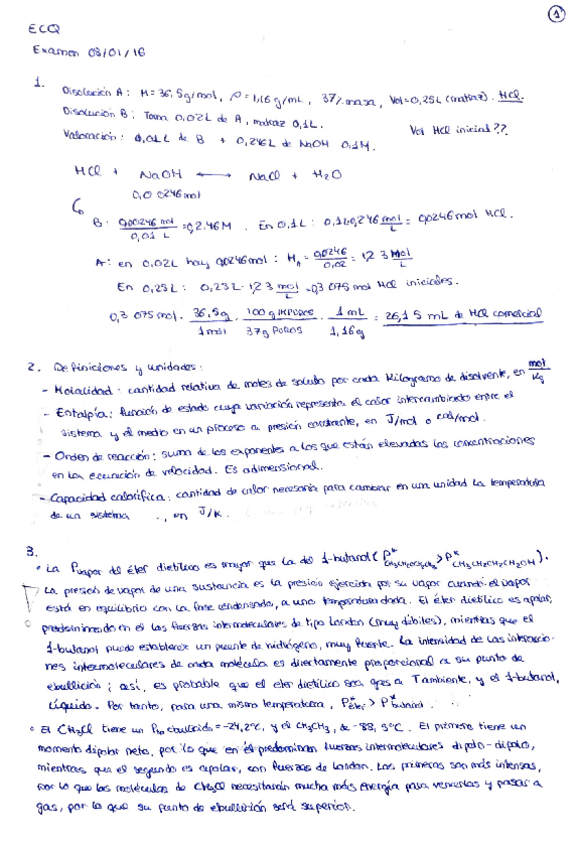 1
ECQ
Examen 08/01/16
1.
Disolución A: M=36,5g/mol, ρ=1,16 g/mL, 37% masa, Vol=0,25L (matraz). HCl.
Disolución B: Toma 0,02L de A, matraz 0,1L.
Valoración: 0,01L de B + 0,246L de NaOH 0,1M.
Vol HCl inicial??
HCl + NaOH ⟷ NaCl + H2O
0,00246 mol
B: 0,00246 mol / 0,01 L = 0,246M. En 0,1L: 0,1·0,246 mol/L = 0,0246 mol HCl.
A: en 0,02L hay 0,0246mol: M_A = 0,0246/0,02 = 1,23 mol/L
En 0,25L: 0,25L · 1,23 mol/L = 0,3075 mol HCl iniciales.
0,3075 mol · 36,5g/1mol · 100g IMPUROS/37g PUROS · 1mL/1,16g = 26,15 mL de HCl comercial
2. Definiciones y unidades:
- Molalidad: cantidad relativa de moles de soluto por cada kilogramo de disolvente, en mol/Kg
- Entalpía: función de estado cuya variación representa el calor intercambiado entre el
sistema y el medio en un proceso a presión constante, en J/mol o cal/mol.
- Orden de reacción: suma de los exponentes a los que están elevadas las concentraciones
en la ecuación de velocidad. Es adimensional.
- Capacidad calorífica: cantidad de calor necesaria para cambiar en una unidad la temperatura
de un sistema, en J/K.
3.
• La Pvapor del éter dietílico es mayor que la del 1-butanol (P*CH3CH2OCH2CH3 > P*CH3CH2CH2CH2OH).
La presión de vapor de una sustancia es la presión ejercida por su vapor cuando el vapor
está en equilibrio con la fase condensada, a una temperatura dada. El éter dietílico es apolar,
predominando en él las fuerzas intermoleculares de tipo London (muy débiles), mientras que el
1-butanol puede establecer un puente de hidrógeno, muy fuerte. La intensidad de las interaccio-
nes intermoleculares de cada molécula es directamente proporcional a su punto de
ebullición; así, es probable que el éter dietílico sea gas a Tambiente, y el 1-butanol,
líquido. Por tanto, para una misma temperatura, P*éter > P*butanol.
• El CH3Cl tiene un Pto ebullición = -24,2ºC, y el CH3CH3, de -88,5ºC. El primero tiene un
momento dipolar neto, por lo que en él predominan fuerzas intermoleculares dipolo-dipolo,
mientras que el segundo es apolar, con fuerzas de London. Las primeras son más intensas,
por lo que las moléculas de CH3Cl necesitarán mucha más energía para vencerlas y pasar a
gas, por lo que su punto de ebullición será superior.